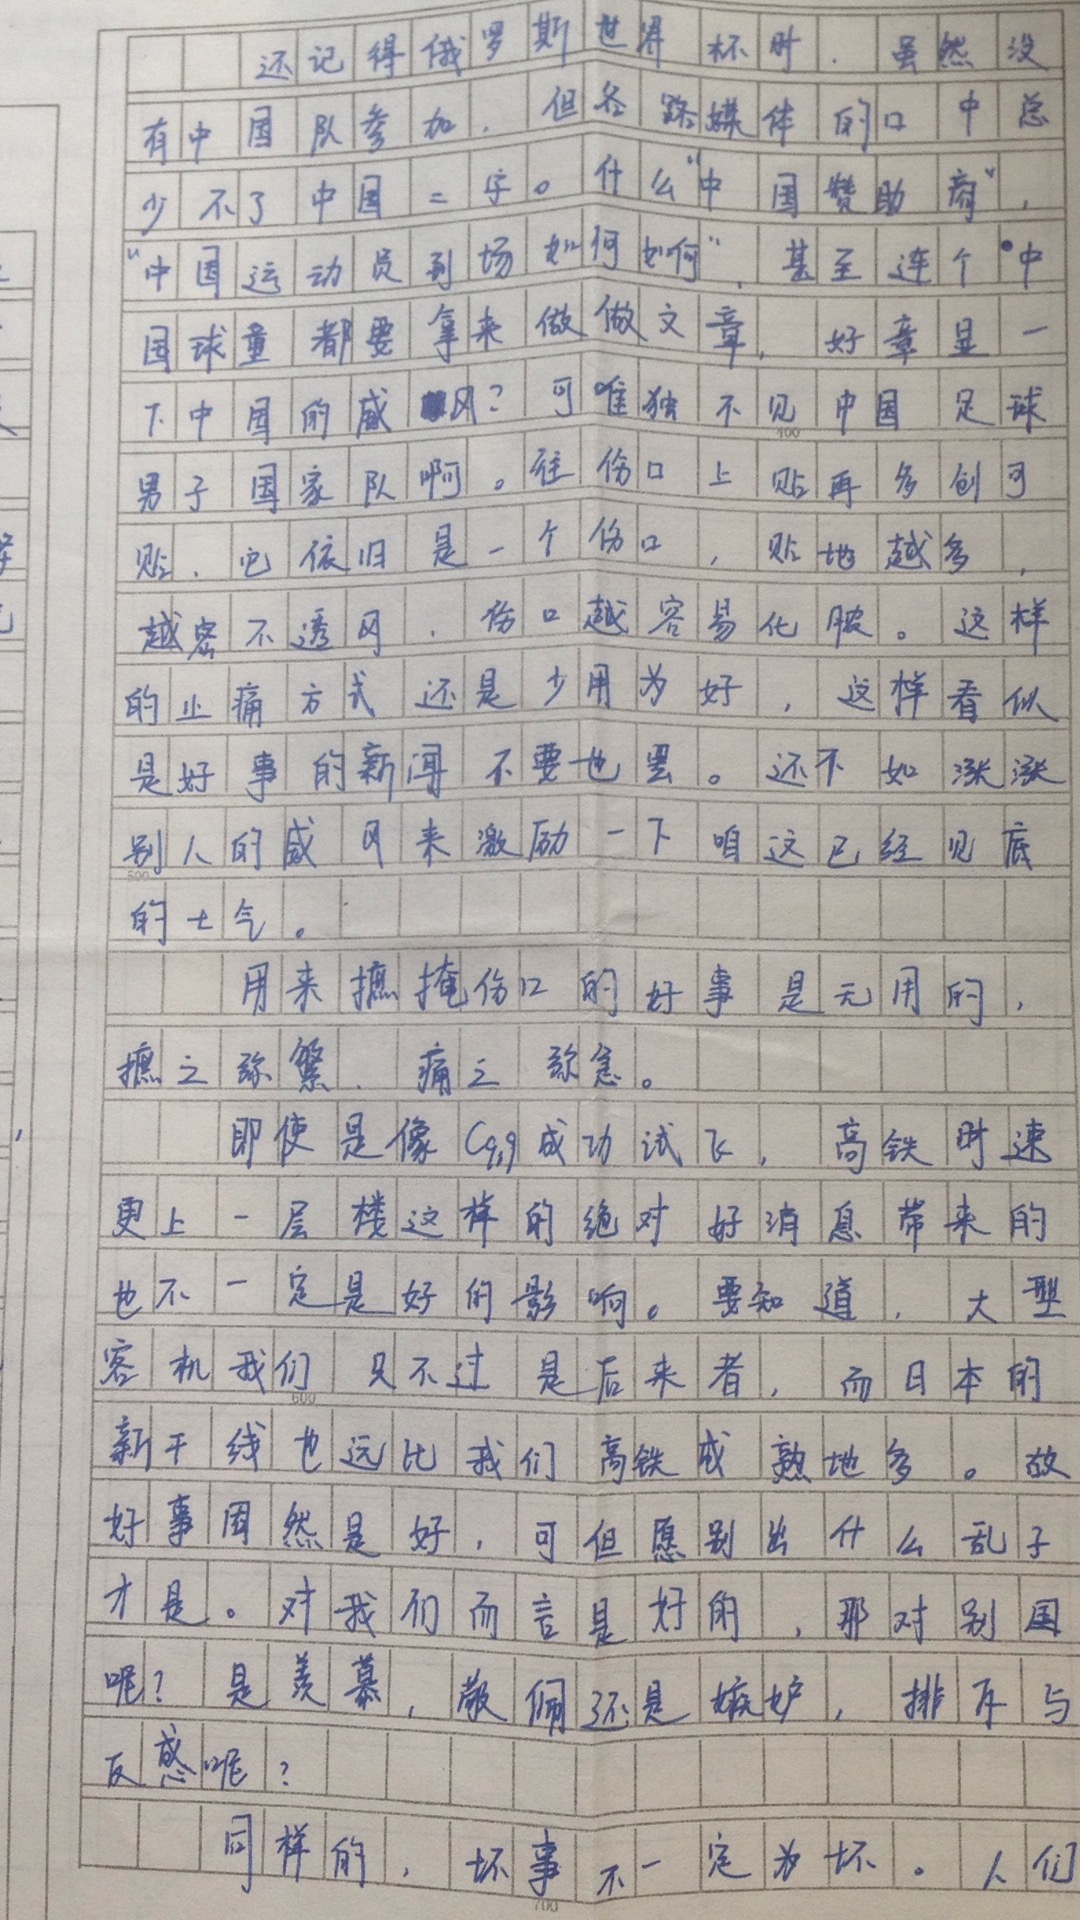 还记得俄罗斯世界杯时，虽然没
有中国队参加，但各路媒体的口中总
少不了中国二字。什么“中国赞助商”，
“中国运动员到场如何如何”，甚至连个“中
国球童都要拿来做做文章，好章显一
下中国的威风？可唯独不见中国足球
400
男子国家队啊。往伤口上贴再多创可
贴，它依旧是一个伤口，贴地越多，
越密不透风，伤口越容易化脓。这样
的止痛方式还是少用为好，这样看似
是好事的新闻不要也罢。还不如涨涨
别人的威风来激励一下咱这已经见底
500
的士气。
用来摭掩伤口的好事是无用的，
摭之弥繁，痛之弥急。
即使是像C919成功试飞，高铁时速
更上一层楼这样的绝对好消息带来的
也不一定是好的影响。要知道，大型
客机我们只不过是后来者，而日本的
600
新干线也远比我们高铁成熟地多。故
好事固然是好，可但愿别出什么乱子
才是。对我们而言是好的，那对别国
呢？是羡慕，敬佩还是嫉妒，排斥与
反感呢？
同样的，坏事不一定为坏。人们
700